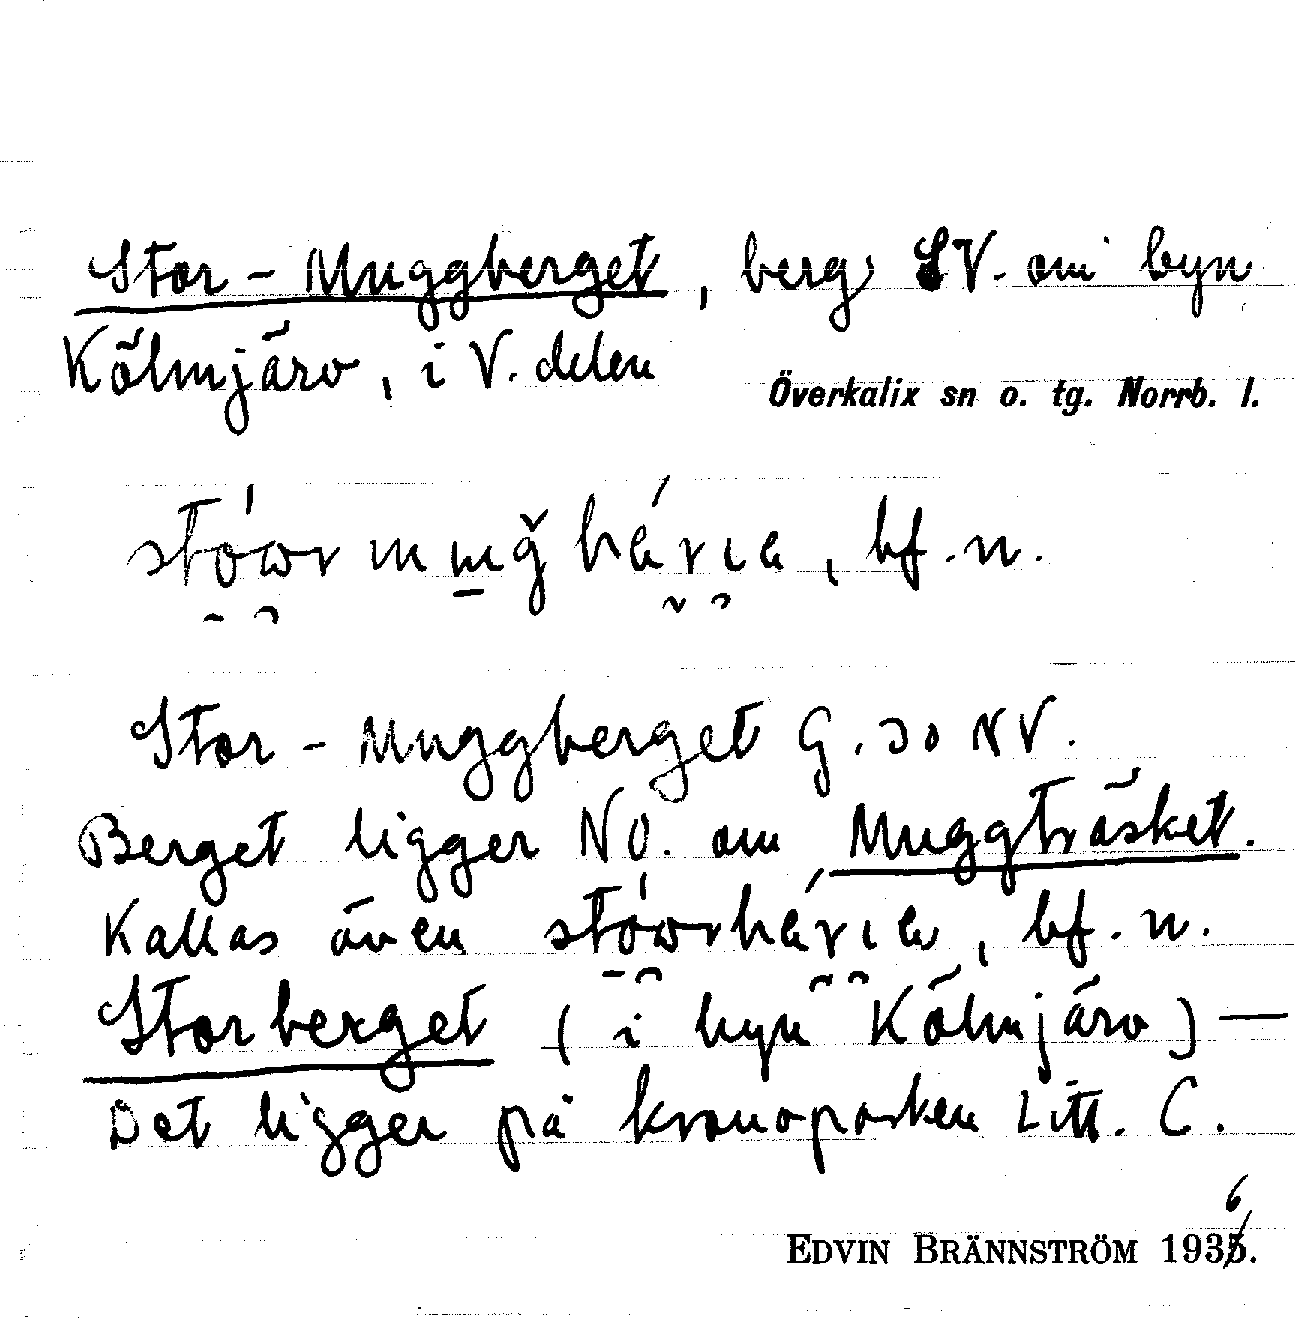 Stor-Muggberget, berg SV. om byn
Kölmjärv, i V. delen
Överkalix sn o. tg. Norrb. l.
bf. n.
Stor-Muggberget G. 30 NV.
Berget ligger NO. om Muggträsket.
Kallas även bf. n.
Storberget (i byn Kölmjärv) —
Det ligger på kronoparken Litt. C.
6
EDVIN BRÄNNSTRÖM 1935.